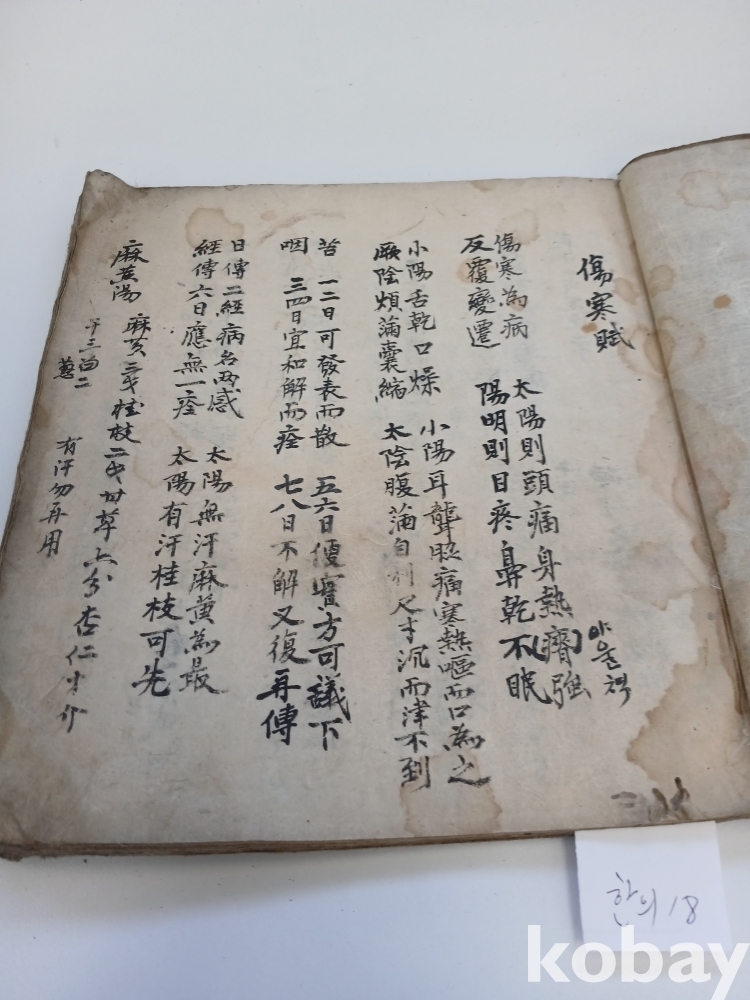 傷寒賦
傷寒為病
反覆變遷
太陽則頭痛身熱脊強
야울척
陽明則目疼鼻乾不眠
小陽耳聾脇痛寒熱嘔而口為之
小陽舌乾口燥
厥陰煩滿囊縮
太陰腹滿自利尺寸沉而津不到
苦 一二日可發表而散 五六日便實方可議下
咽 三四日宜和解而痊 七八日不解又復再傳
日傳二經病名兩感
經傳六日應無一痊
太陽無汗麻黃為最
太陽有汗桂枝可先
麻黃湯 麻黃三戈桂枝二戈甘草六分杏仁
干三 二
蔥
有汗勿再用
한의 18
kobay